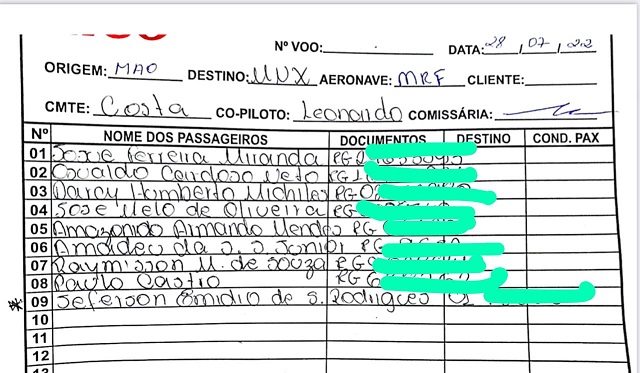 Nº VOO: DATA: 28 / 07 / 22
ORIGEM: MAO DESTINO: UNX AERONAVE: MRF CLIENTE:
CMTE: Costa CO-PILOTO: Leonardo COMISSÁRIA:
Nº NOME DOS PASSAGEIROS DOCUMENTOS DESTINO COND. PAX
01 Josue Ferreira Miranda RG
02 Osvaldo Cardoso Neto RG
03 Darcy Homberto Michiles RG
04 Jose Melo de Oliveira RG
05 Amazonido Armando Mendes RG
06 Amadeu da S. S Junior RG
07 Raymisson M. de Souza RG
08 Paulo Castro RG
* 09 Jeferson Emidio de S. Rodrigues
10
11
12
13